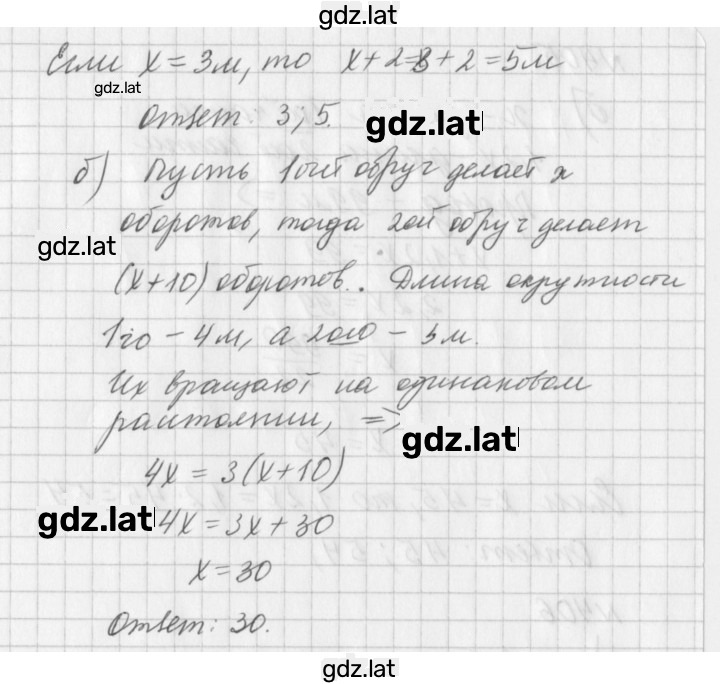 gdz.lat
Если x = 3м, то x + 2 = 3 + 2 = 5м
gdz.lat
Ответ: 3; 5.
gdz.lat
б) Пусть 1ый обруч делает x
оборотов, тогда 2ой обруч делает
gdz.lat
(x+10) оборотов. Длина окружности
1го – 4м, а 2ого – 3м.
Их вращают на одинаковом
расстоянии, =>
gdz.lat
4x = 3(x+10)
gdz.lat
4x = 3x + 30
x = 30
Ответ: 30.
gdz.lat